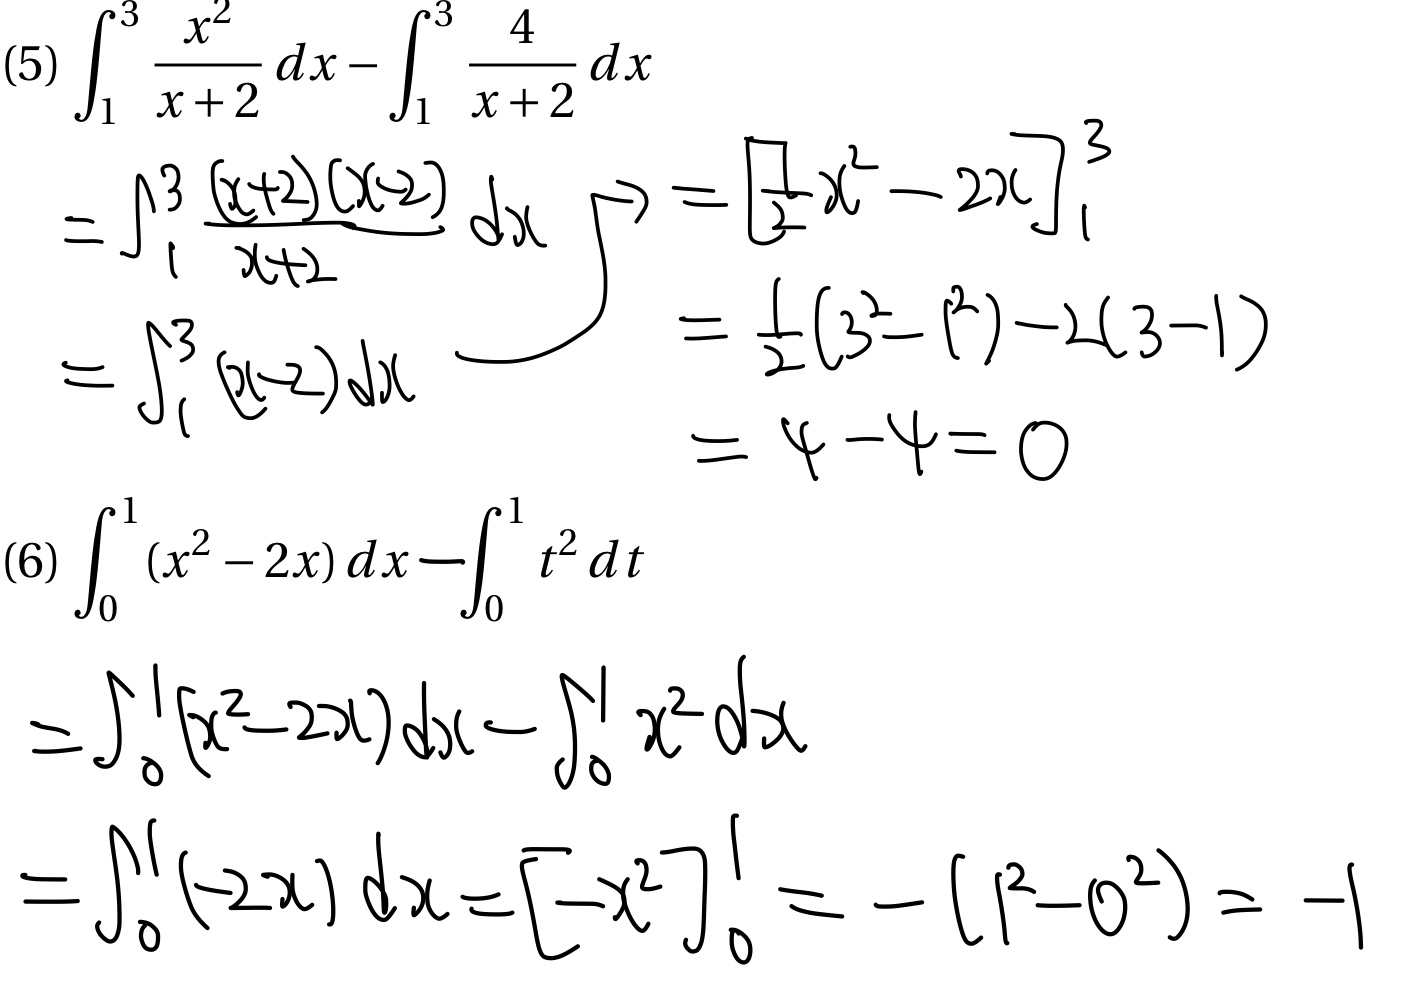 (5) ∫₁³ x²/(x+2) dx − ∫₁³ 4/(x+2) dx
= ∫₁³ (x+2)(x−2)/(x+2) dx
= ∫₁³ (x−2)dx →
= [1/2 x² − 2x]₁³
= 1/2(3²−1²)−2(3−1)
= 4−4=0
(6) ∫₀¹ (x² − 2x) dx − ∫₀¹ t² dt
= ∫₀¹ (x²−2x)dx − ∫₀¹ x² dx
= ∫₀¹ (−2x) dx = [−x²]₀¹ = −(1²−0²) = −1